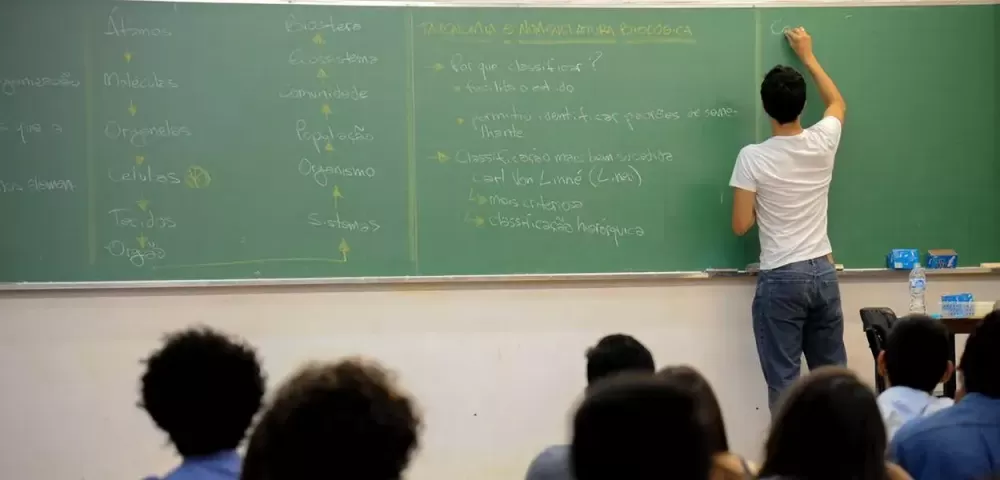 Átomos
Moléculas
Organelas
Células
Tecidos
Órgão
Biosfera
Ecossistema
Comunidade
População
Organismo
Sistemas
TAXONOMIA E NOMENCLATURA BIOLÓGICA
Por que classificar?
facilita o estudo
permitiu identificar padrões de seme-
lhante
Classificação mais bem sucedida
Carl Von Linné (Lineu)
mais criterios
classificação hierórquica